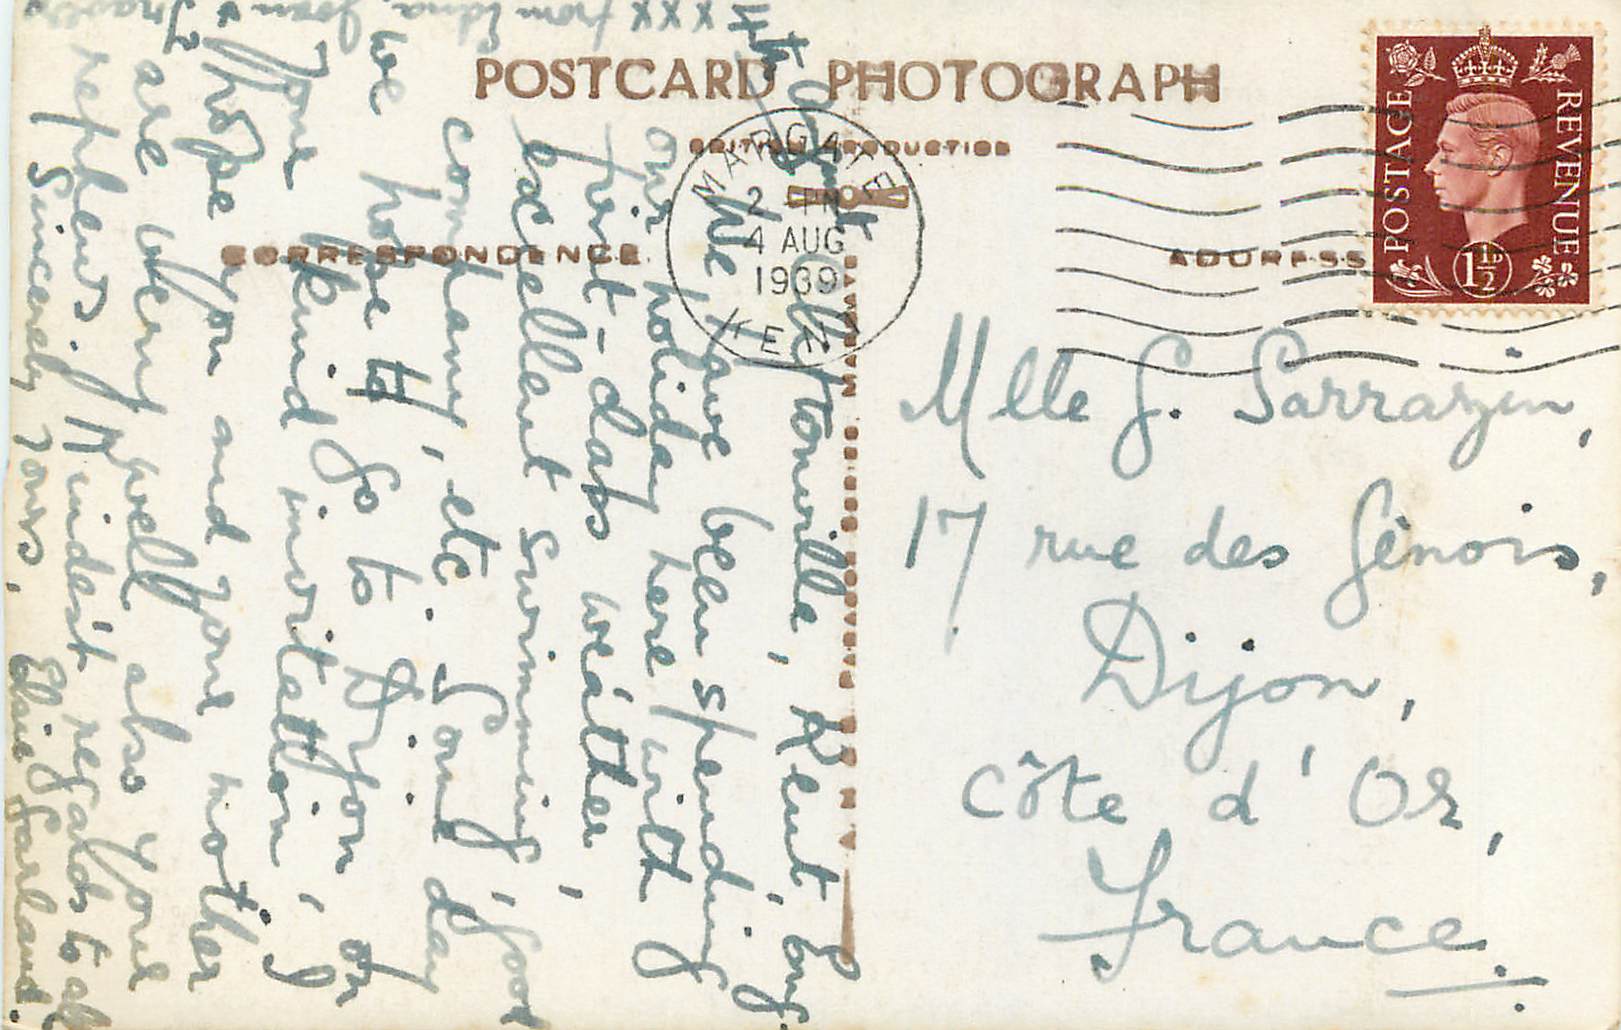 POSTCARD PHOTOGRAPH
BRITISH PRODUCTION
CORRESPONDENCE
ADDRESS
MARGATE
2 PM
4 AUG
1939
KENT
POSTAGE
REVENUE
1½D
Mlle G. Sarrazin,
17 rue des Génois,
Dijon,
Côte d'Or,
France.
4th August
Cliftonville, Kent, Eng.
We have been spending
our holiday here with
first-class weather,
excellent swimming, good
company, etc. Some day
we hope to go to Dijon on
your kind invitation, I
hope you and your mother
are very well also your
nephews. Kindest regards to all
Sincerely yours, Elaine Garland.
xxxx from Edna, Joan &